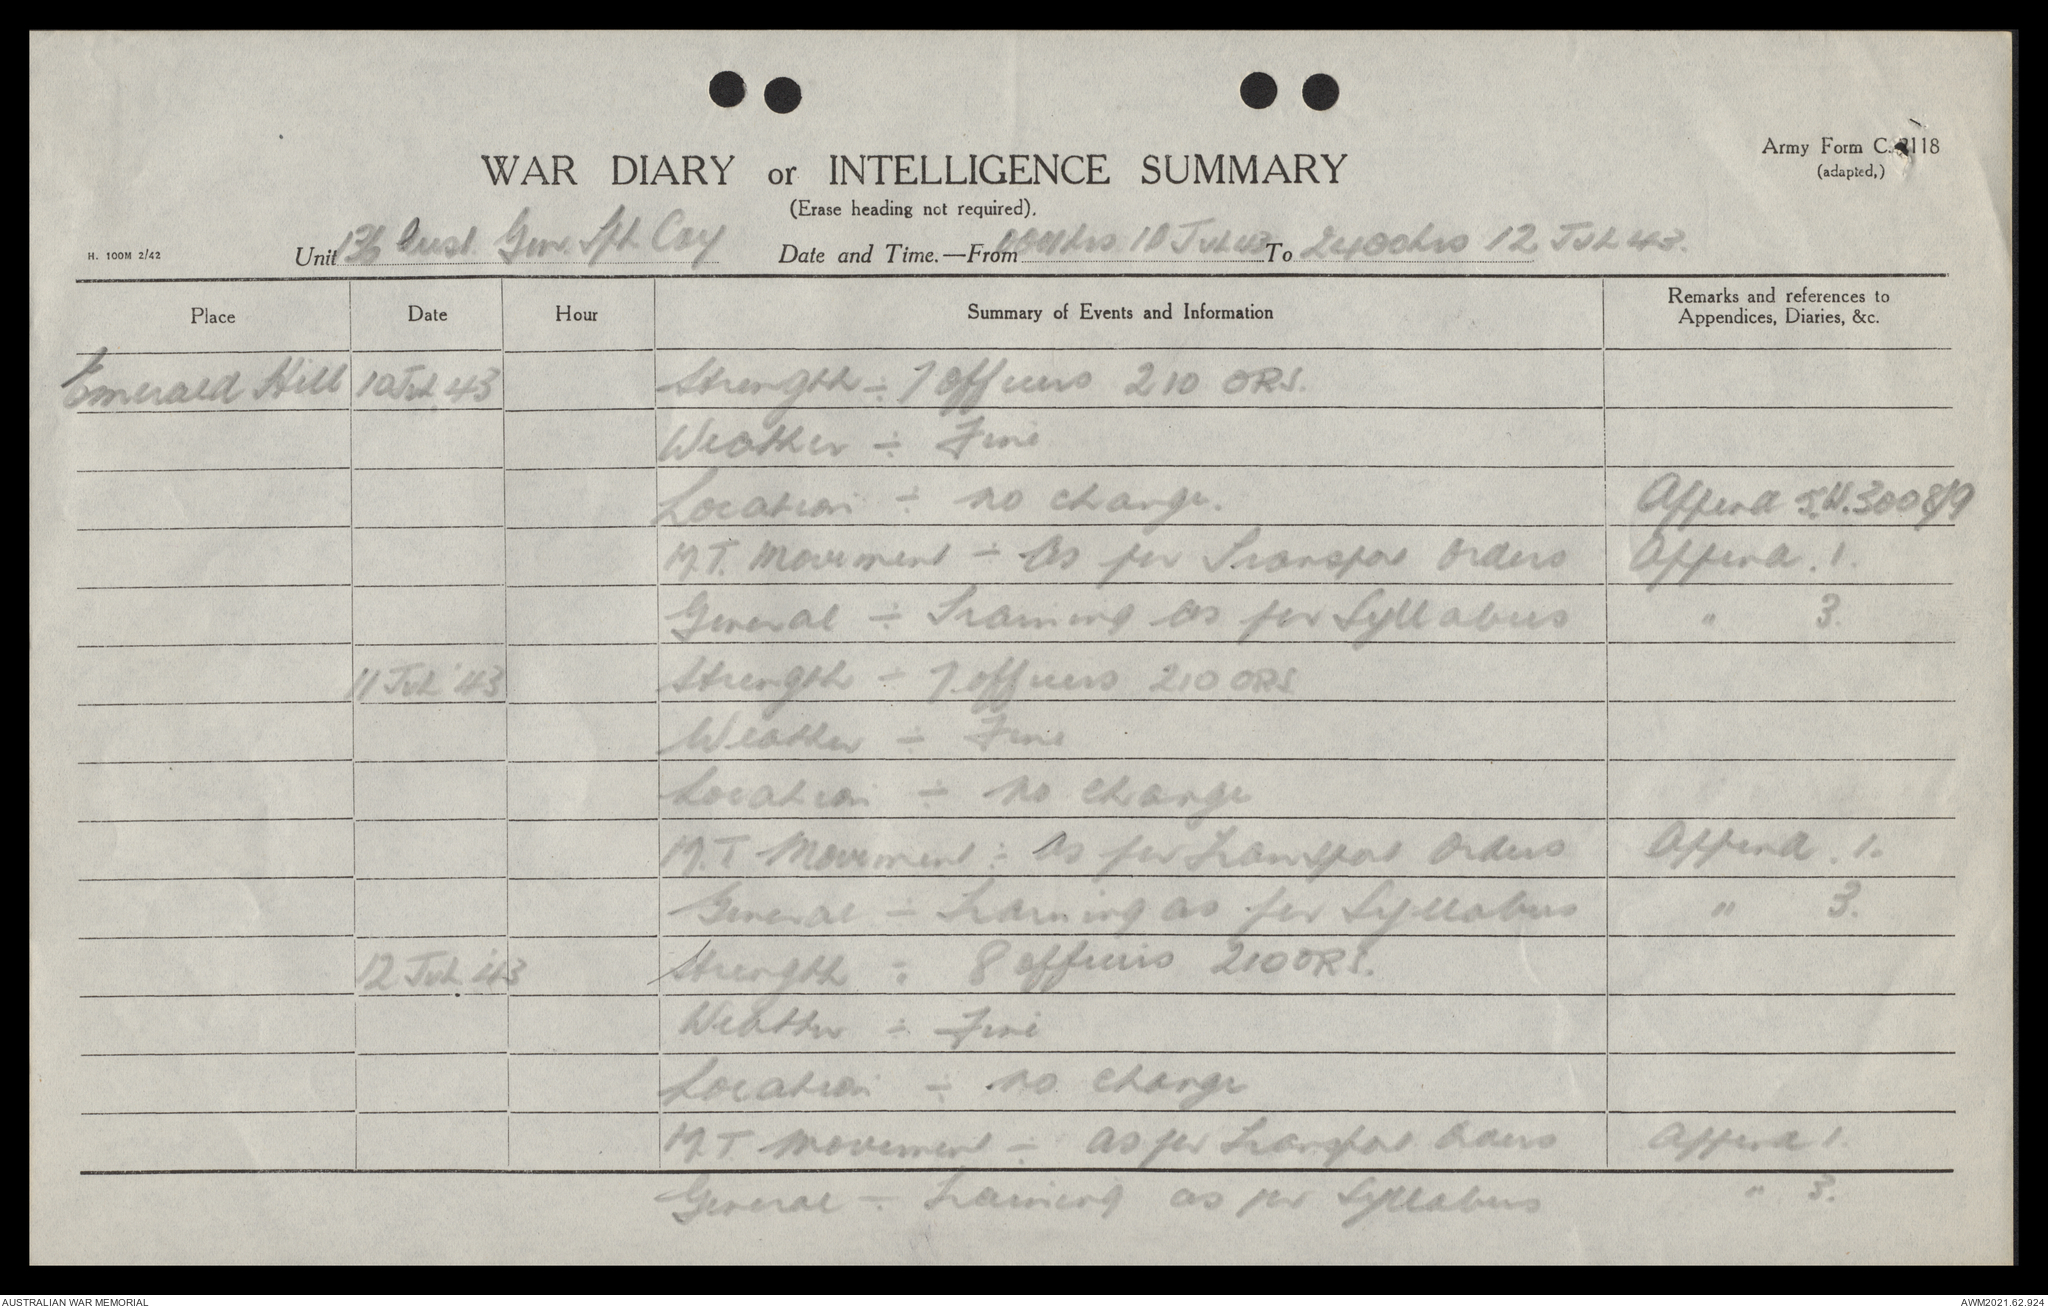 Army Form C.2118
(adapted,)
WAR DIARY or INTELLIGENCE SUMMARY
(Erase heading not required).
H. 100M 2/42
Unit 136 Aust. Gen. Tpt. Coy Date and Time.—From 0001hrs 10 Jul 43 To 2400hrs 12 Jul 43.
Place Date Hour Summary of Events and Information Remarks and references to Appendices, Diaries, &c.
Emerald Hill 10 Jul. 43 Strength ÷ 7 officers 210 ORS.
Weather ÷ Fine
Location ÷ no change. Append 3008/9
M.T. Movement ÷ As per Transport Orders Append. 1.
General ÷ Training as per Syllabus " 3.
11 Jul '43 Strength ÷ 7 officers 210 ORS
Weather ÷ Fine
Location ÷ no change
M.T Movement ÷ As per Transport Orders Append. 1.
General ÷ Training as per Syllabus " 3.
12 Jul. 43 Strength ÷ 8 officers 210 ORS.
Weather ÷ Fine
Location ÷ no change
M.T. Movement ÷ as per Transport Orders Append 1.
General ÷ Training as per Syllabus " 3.
AUSTRALIAN WAR MEMORIAL AWM2021.62.924